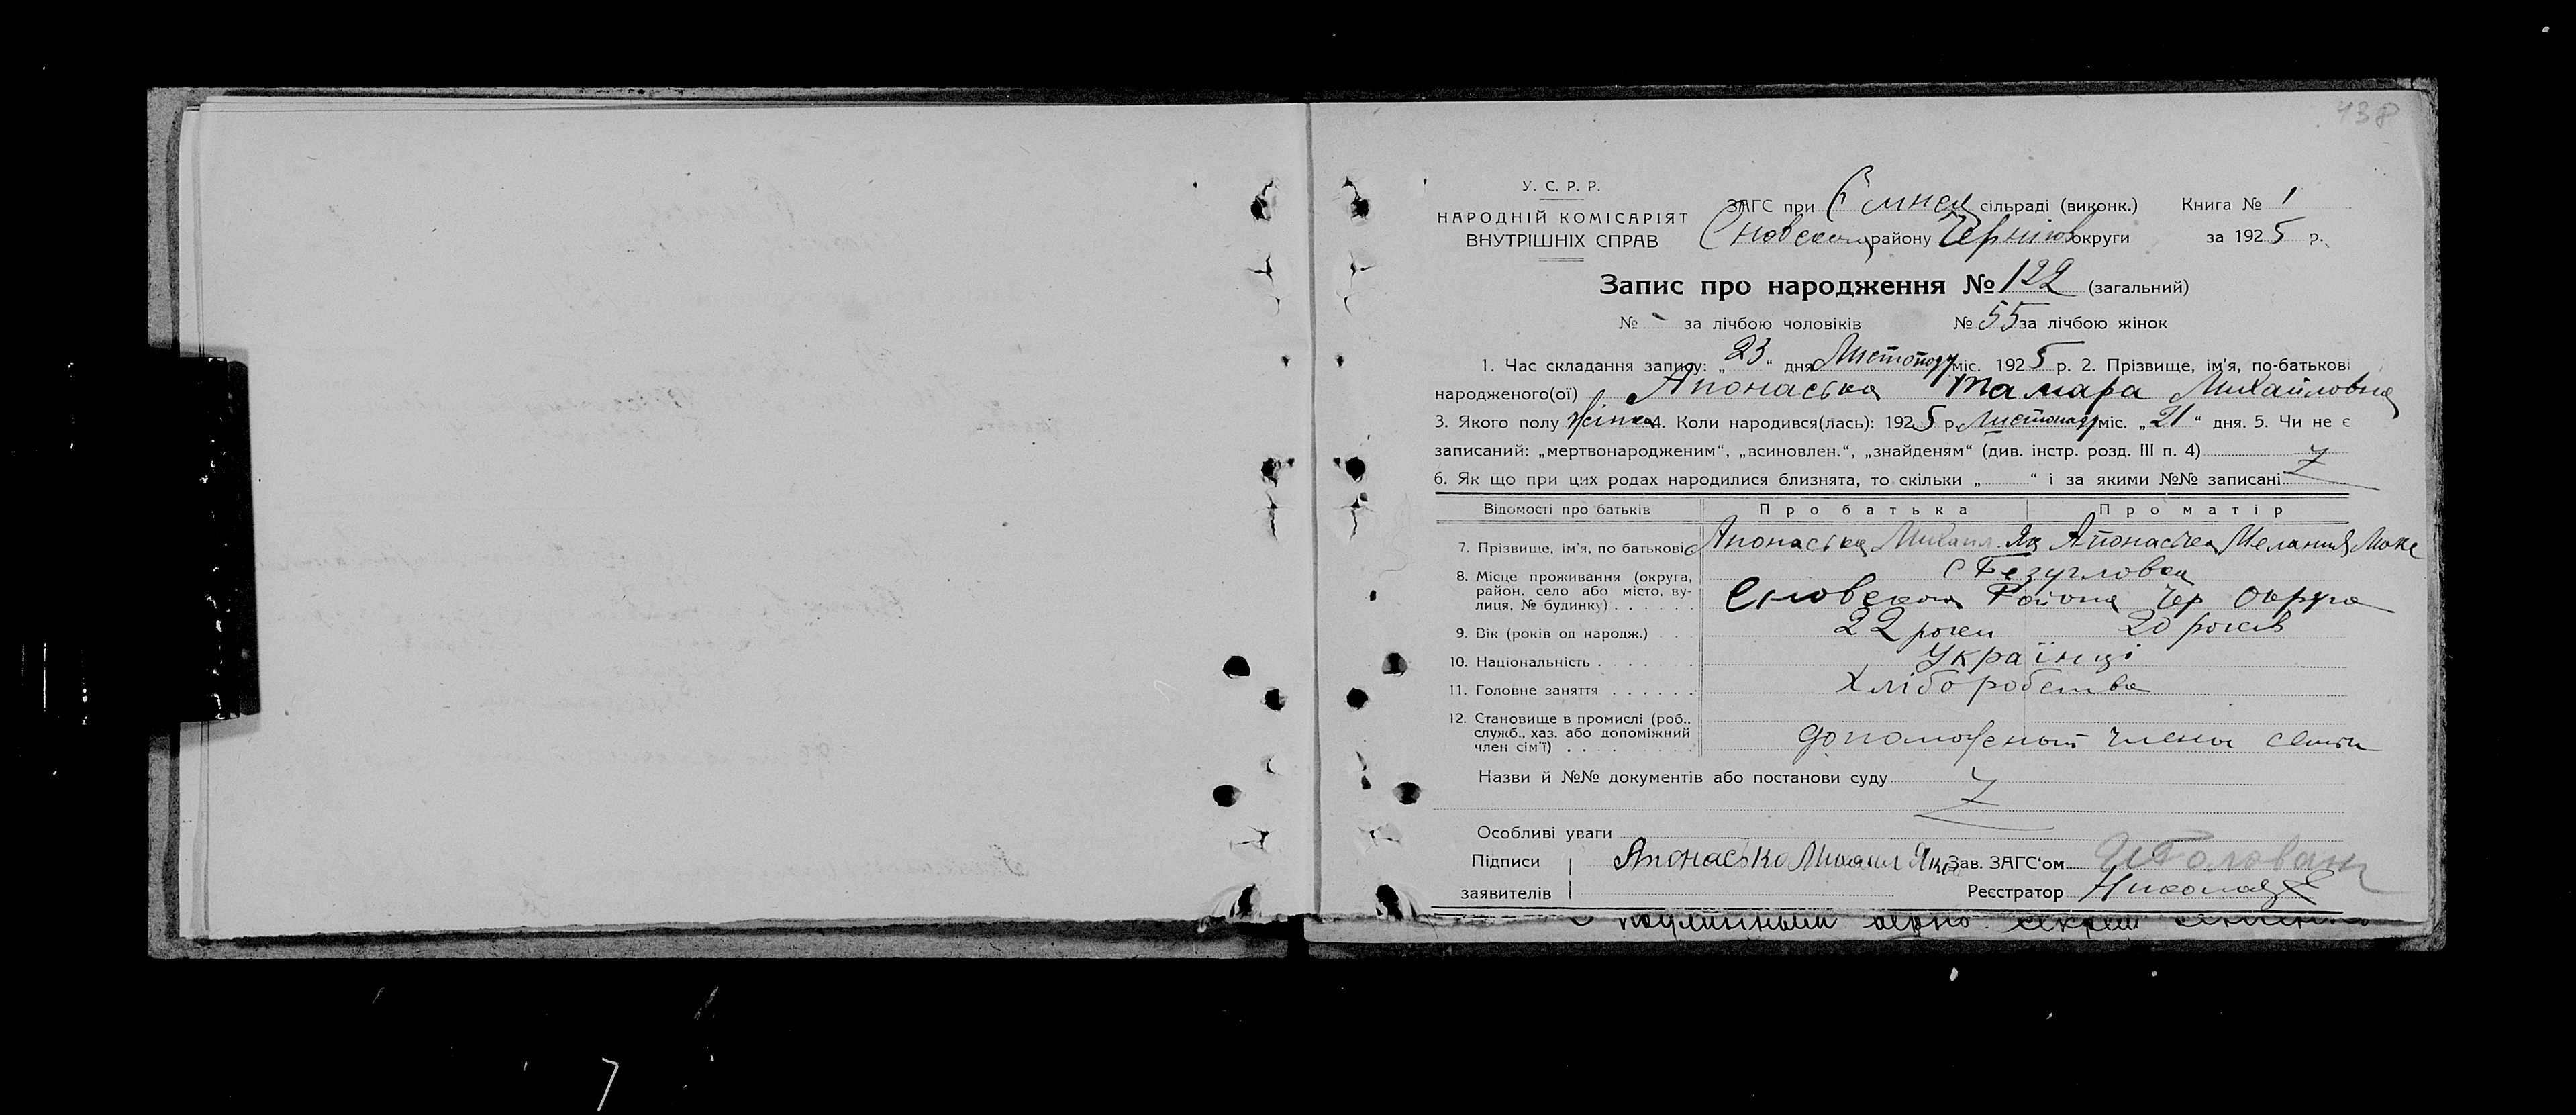 438
У. С. Р. Р.
НАРОДНІЙ КОМІСАРІЯТ
ВНУТРІШНІХ СПРАВ
ЗАГС при сільраді (виконк.) Книга № 1
району Чернігов округи за 1925 р.
Запис про народження № 122 (загальний)
№ - за лічбою чоловіків № 55 за лічбою жінок
1. Час складання запису: „23“ дня Листопаду міс. 1925 р. 2. Прізвище, ім'я, по-батькові
народженого(ої) Апонаська Тамара Михайловна
3. Якого полу Жінка 4. Коли народився(лась): 1925 р. Листопаду міс. „21“ дня. 5. Чи не є
записаний: „мертвонародженим“, „всиновлен.“, „знайденям“ (див. інстр. розд. III п. 4)
6. Як що при цих родах народилися близнята, то скільки „ “ і за якими №№ записані
Відомості про батьків Про батька Про матір
7. Прізвище, ім'я, по батькові Апонаська Михаил Як Апонаська Мелания Моке
8. Місце проживання (округа, район, село або місто, вулиця, № будинку) с Безугловка
Сновского Района Чер Округа
9. Вік (років од народж.) 22 роки 20 років
10. Національність Українці
11. Головне заняття Хліборобства
12. Становище в промислі (роб., служб., хаз. або допоміжний член сім'ї) члены
Назви й №№ документів або постанови суду
Особливі уваги
Підписи заявителів Апонасько Михаил Яков Зав. ЗАГС'ом
Реєстратор